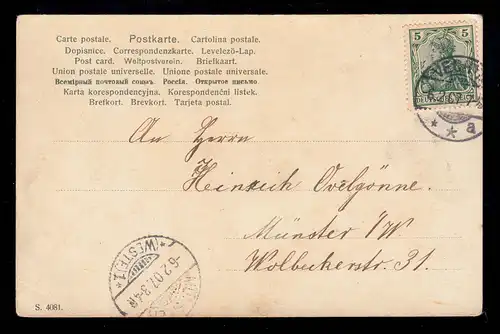 Carte postale. Postkarte. Cartolina postale.
Dopisnice. Correspondenzkarte. Levelező-Lap.
Post card. Weltpostverein. Briefkaart.
Union postale universelle. Unione postale universale.
Всемірный почтовый союзъ. Россія. Открытое письмо.
Karta korespondencyjna. Korespondenčni listek.
Brefkort. Brevkort. Tarjeta postal.
5 5
DEUTSCHES REICH
* * a
An Herrn
Heinrich Ovelgönne.
Münster i/W.
Wolbeckerstr. 31.
(WESTF.) 1.
-6.2.07. 3-4 N
S. 4081.